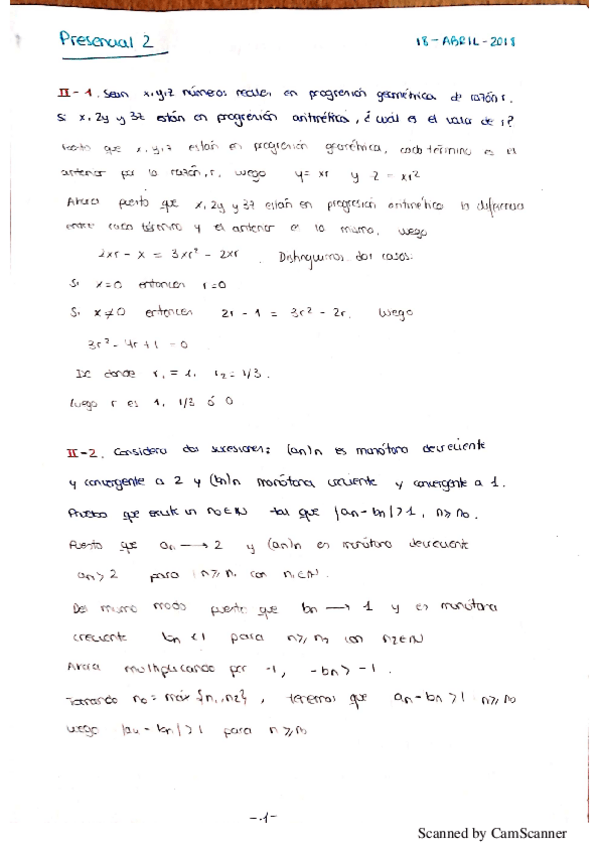 Presencial 2
18-ABRIL-2018
II-1. Sean x,y,z números reales en progresión geométrica de razón r.
Si x, 2y y 3z están en progresión aritmética, ¿cuál es el valor de r?
Puesto que x, y, z están en progresión geométrica, cada término es el
anterior por la razón, r, luego y = xr y z = xr²
Ahora puesto que x, 2y y 3z están en progresión aritmética la diferencia
entre cada término y el anterior es la misma, luego
2xr - x = 3xr² - 2xr. Distinguimos dos casos:
Si x=0 entonces r=0
Si x≠0 entonces 2r - 1 = 3r² - 2r. Luego
3r² - 4r + 1 = 0
De donde r₁ = 1, r₂ = 1/3.
Luego r es 1, 1/3 ó 0
II-2. Considera dos sucesiones: (an)n es monótona decreciente
y convergente a 2 y (bn)n monótona creciente y convergente a 1.
Prueba que existe un n₀∈ℕ tal que |an-bn|>1, n≥n₀.
Puesto que an → 2 y (an)n es monótona decreciente
an > 2 para n≥n₁ con n₁∈ℕ.
Del mismo modo puesto que bn → 1 y es monótona
creciente bn < 1 para n≥n₂ con n₂∈ℕ
Ahora multiplicando por -1, -bn > -1.
Tomando n₀ = máx {n₁, n₂}, tenemos que an - bn > 1 n≥n₀
Luego |an - bn| > 1 para n≥n₀
-1-
Scanned by CamScanner